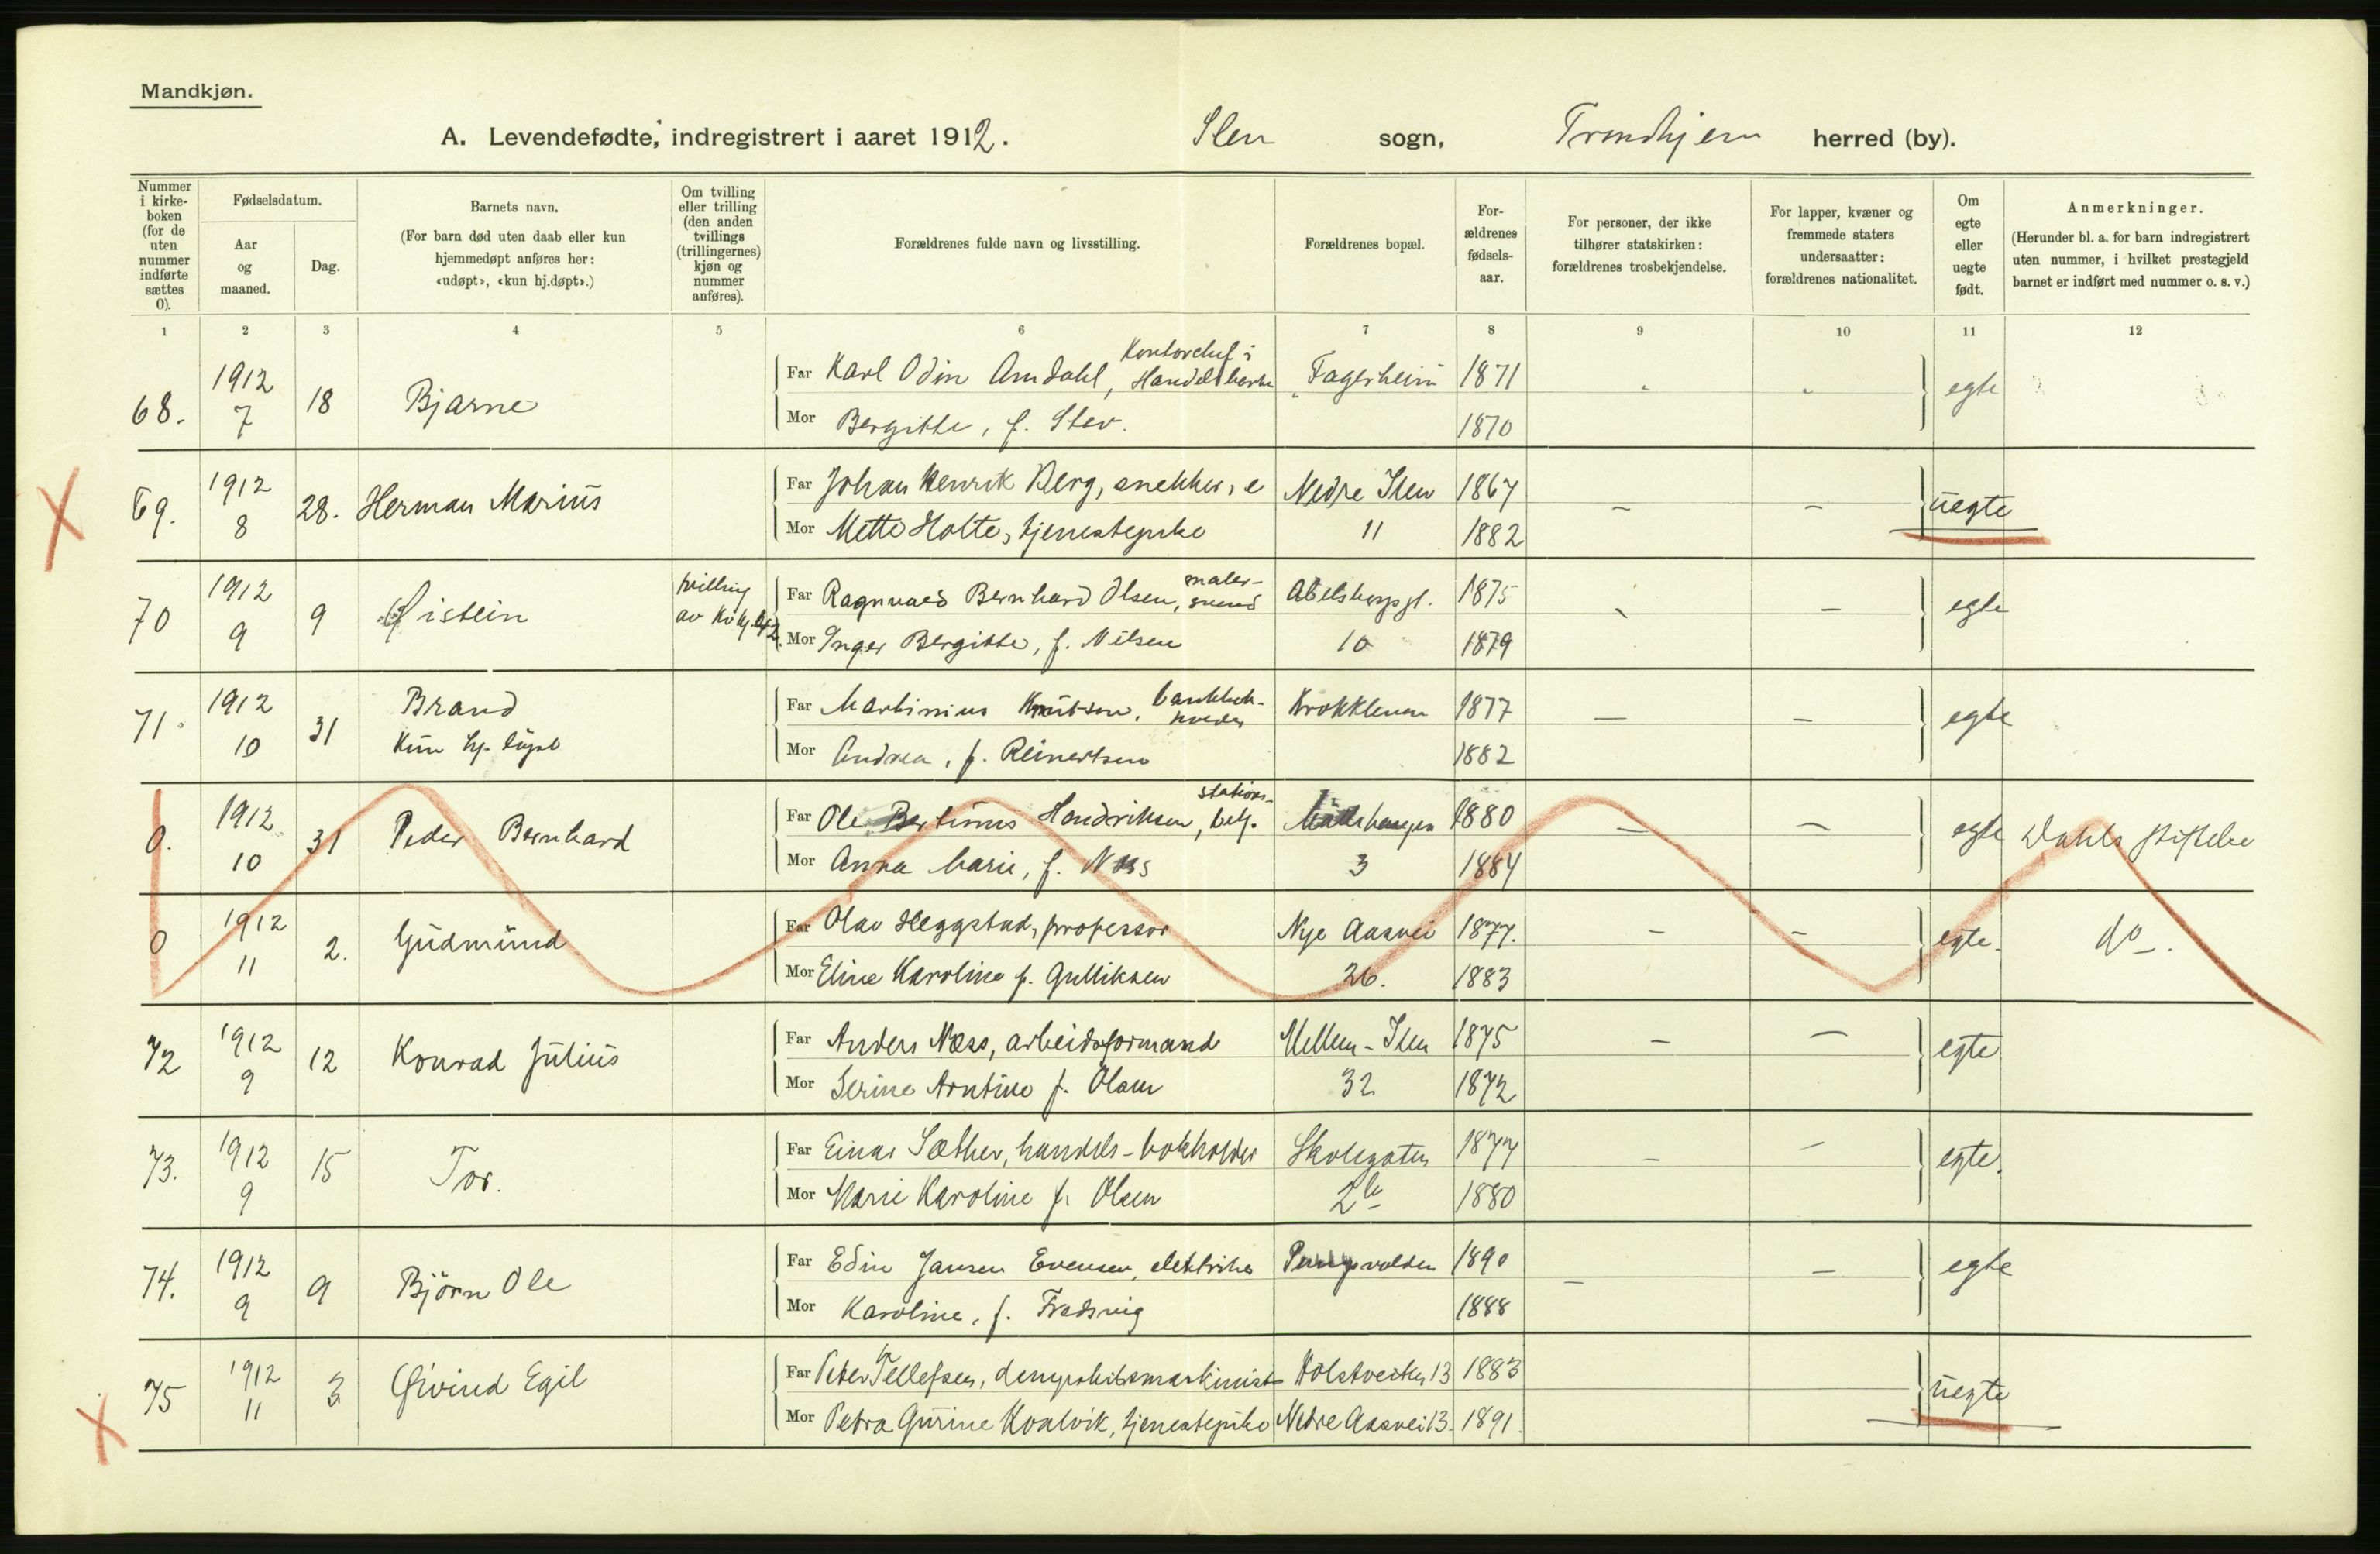 Mandkjøn.
A. Levendefødte, indregistrert i aaret 1912. Ilen sogn, Trondhjem herred (by).
Nummer i kirke-boken (for de uten nummer indførte sættes 0).
Fødselsdatum.
Aar og maaned.
Dag.
Barnets navn.
(For barn død uten daab eller kun hjemmedøpt anføres her: «udøpt», «kun hj.døpt».)
Om tvilling eller trilling (den anden tvillings (trillingernes) kjøn og nummer anføres).
Forældrenes fulde navn og livsstilling.
Forældrenes bopæl.
For-ældrenes fødsels-aar.
For personer, der ikke tilhører statskirken: forældrenes trosbekjendelse.
For lapper, kvæner og fremmede staters undersaatter: forældrenes nationalitet.
Om egte eller uegte født.
Anmerkninger.
(Herunder bl. a. for barn indregistrert uten nummer, i hvilket prestegjeld barnet er indført med nummer o. s. v.)
1 2 3 4 5 6 7 8 9 10 11 12
68. 1912 7 18 Bjarne
Far Karl Odin Amdahl, Kontorchef i Fagerheim 1871 egte
Mor Bergitte, f. 1870
69. 1912 8 28. Herman Marius
Far Johan Henrik Berg, snekker, e Nedre Ilen 1867 — — uegte
Mor Mette Holte, tjenestepike 11 1882
70 1912 9 9 Øistein tvilling av Kvkj. 42.
Far Ragnvald Bernhard Olsen, malersvend 1875 — egte
Mor Inger Bergitte, f. Nilsen 10 1879
71. 1912 10 31 Brand
Kun hj. døpt
Far Martinius Knutsen, Krokkleven 1877 — — egte
Mor Andrea, f. Reinertsen 1882
0. 1912 10 31 Peder Bernhard
Far Ole Bertinus Hendriksen, stations-betj. 1880 — — egte Dahls stiftelse
Mor Anna Marie, f. Næss 3 1884
0 1912 11 2. Gudmund
Far Olav Heggstad, professor Nye Aasvei 1877. — — egte. do.
Mor Eline Karoline f. Gulliksen 26. 1883
72 1912 9 12 Konrad Julius
Far Anders Næss, arbeidsformand Mellem-Ilen 1875 — — egte
Mor Serine Arntine f. Olsen 32 1872
73. 1912 9 15 Tor.
Far Einar Sæther, handels-bokholder Skolegaten 1877 — — egte.
Mor Marie Karoline f. Olsen 1880
74. 1912 9 9 Björn Ole
Far Edin Jansen Evensen, elektriker 1890 — — egte
Mor Karoline, f. 1888
75 1912 11 3 Øivind Egil
Far Peter Tellefsen, 13 1883 uegte
Mor Petra Gurine Kvalvik, tjenestepike Nedre Aasvei 13. 1891.